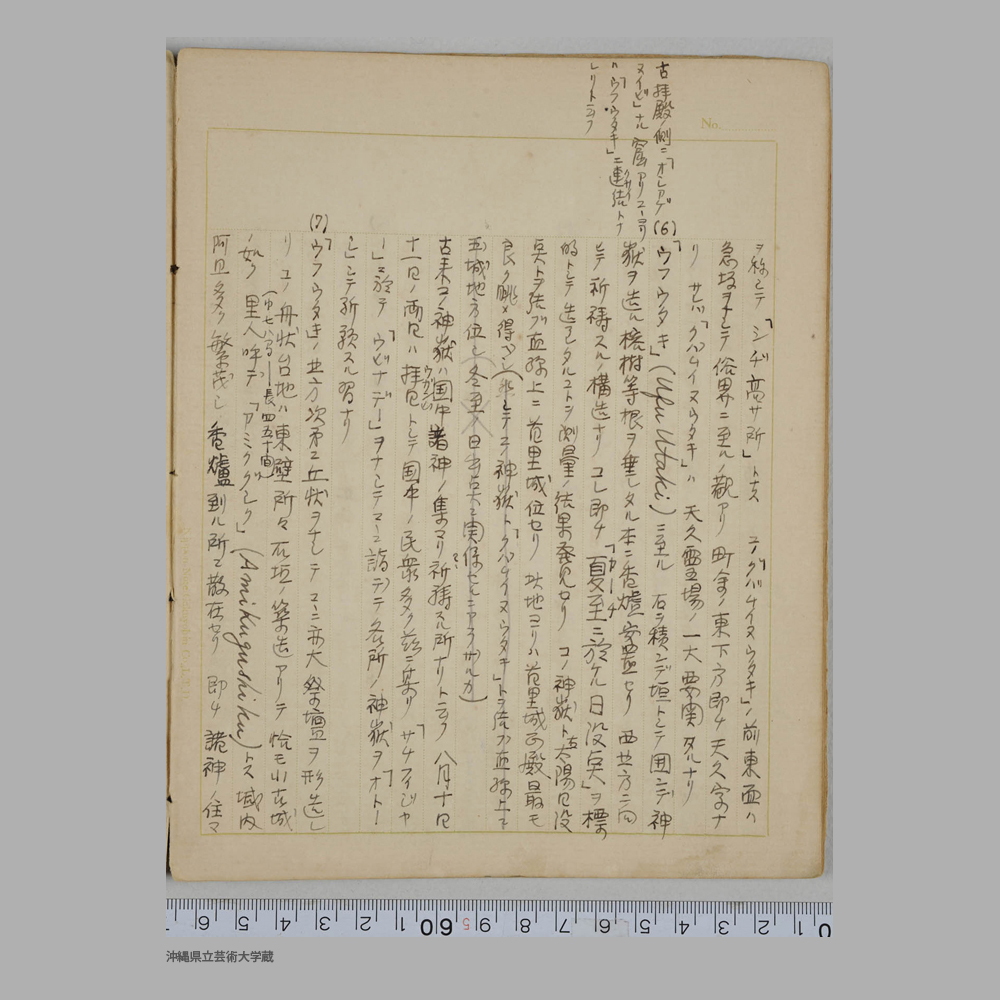 No.
古拝殿ノ側ニ「オシアゲ
ヌイビ」ナル窟アリユーヨリ
ハ「ウフウタキ」ニ連結トナ
レリトニフ
ヲ称シテ「シヂ高サ所」トス ニ ノ前東面ハ
急坂ヲナシテ俗界ニ至ルノ観アリ 町舎ノ東下方即チ天久字ノナ
リ サレバ ハ天久霊場ノ一大要関タルナリ
(6) 「ウフウタキ」(Ufu Utaki) ニ至ル 石ヲ積ンデ垣トシテ囲ンデ神
嶽ヲ造ル 榕樹等根ヲ垂レタル本ニ香爐安置セリ 西北方ニ向
ヒテ祈禱スルノ構造ナリ コレ即チ「夏至ニ於ケル日没点」ヲ標
的トシテ造ラレタルコトヲ測量ノ結果発見セリ コノ神嶽ト太陽日没
点トヲ結ブ直線上ニ首里城位セリ 此地ヨリハ首里城正殿最モ
良ク眺メ得ベシ 神嶽ト トヲ結ブ直線上ニ
城地方位シ 冬至ノ日出点ニ関係セルニアラザルカ)
古来コノ神嶽ハ国中諸神ノ集マリ祈禱スル所ナリトニフ 八月十日
十一日ノ両日ハ拝日トシテ国中ノ民衆多ク茲ニ集リ「サナフイジャ
ー」ニ於テ「ウビナデー」ヲナシテココニ詣デテ各所ノ神嶽ヲ「オトー
シ」シテ祈願スル習ナリ
(7) 「ウフウタキ」ノ北方次第ニ丘状ヲナシテココニ亦大祭壇ヲ形造レ
リ コノ舟状台地ハ東壁所々石垣ノ築造アリテ恰モ小古城
(巾七八間 長四五十間)
ノ如ク 里人呼デ「アミクグシク」(Amikugushiku)トス 城内
阿旦多ク繁茂シ 香爐到ル所ニ散在セリ 即チ諸神ノ住マ
0 1 2 3 4 5 6 7 8 9 60 1 2 3 4 5 6
沖縄県立芸術大学蔵